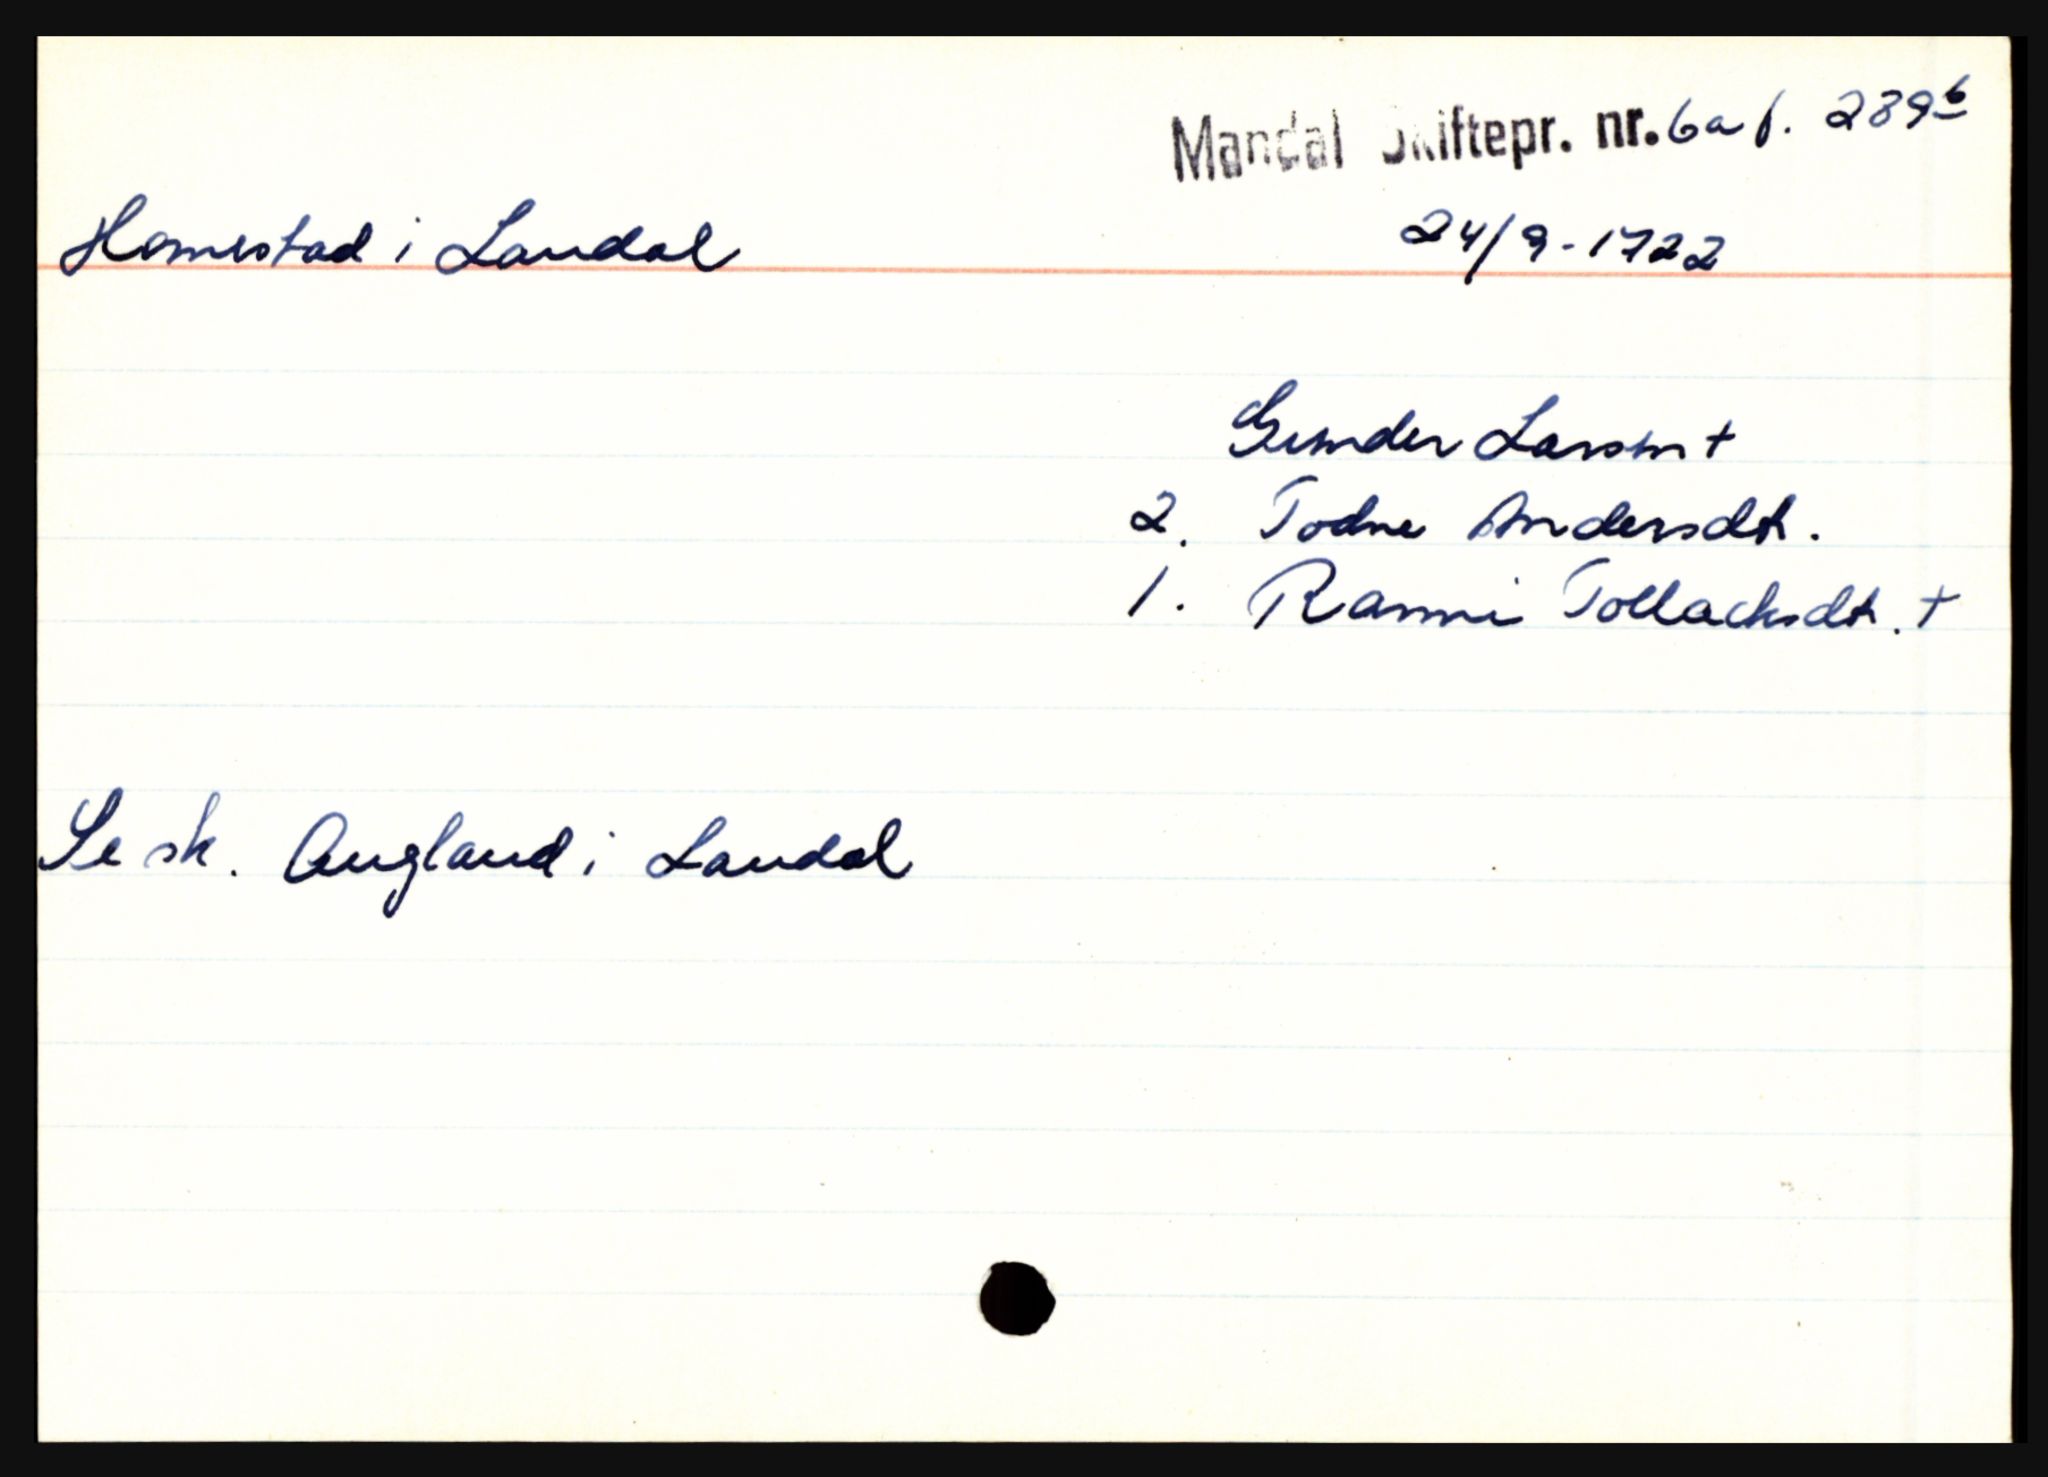 Mandal Skiftepr. nr. 6a f. 289b
Homestad i Laudal
24/9-1722
Gunder Larsen +
2. Todne Andersdt.
1. Ranni Tollachsdt. +
Se sk. Augland i Laudal